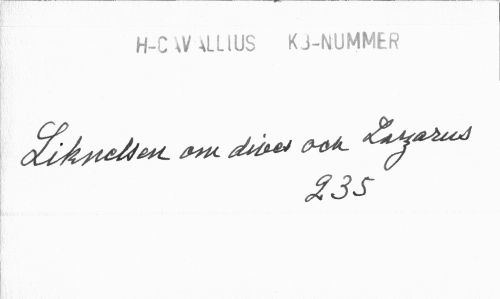 H-CAVALLIUS KB-NUMMER
Liknelsen om dives och Lazarus
235